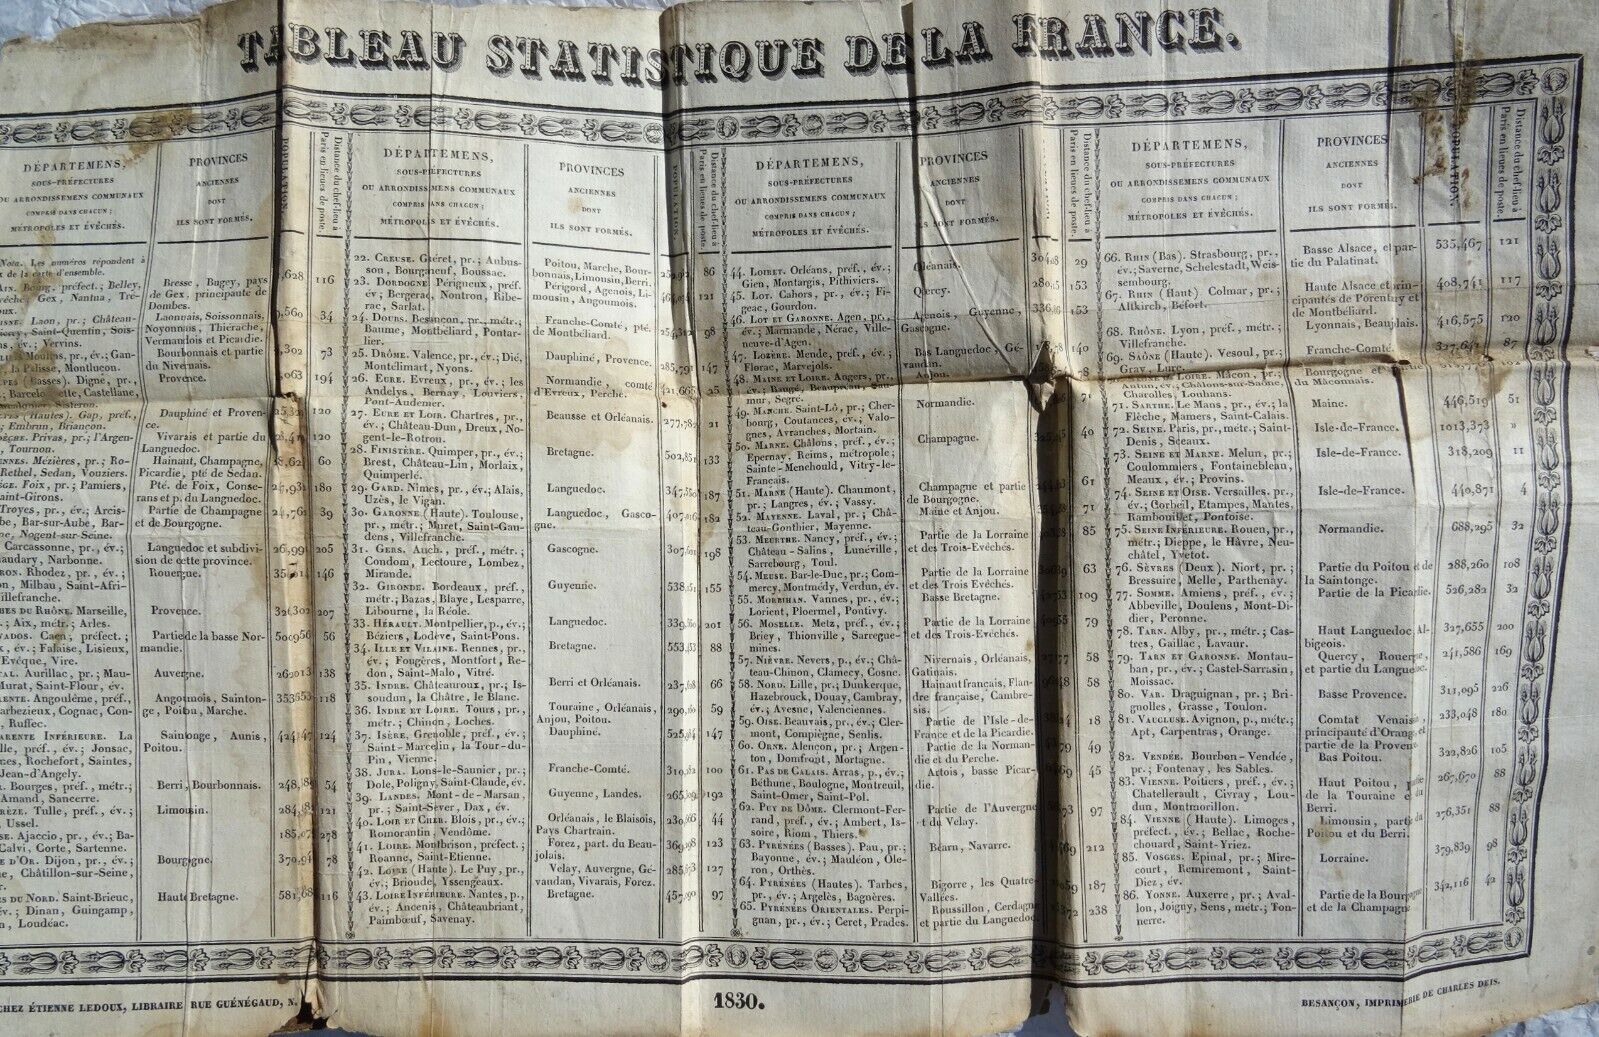 TABLEAU STATISTIQUE DE LA FRANCE.
DÉPARTEMENS,
SOUS-PRÉFECTURES
OU ARRONDISSEMENS COMMUNAUX
COMPRIS DANS CHACUN;
MÉTROPOLES ET ÉVÊCHÉS.
PROVINCES
ANCIENNES
DONT
ILS SONT FORMÉS.
POPULATION.
Distance du chef-lieu à
Paris en lieues de poste.
Nota. Les numéros répondent à
de la carte d'ensemble.
Bourg, préfect.; Belley,
Gex, Nantua, Tré-
Bresse, Bugey, pays
de Gex, principauté de
Dombes.
116
Laon, pr.; Château-
Saint-Quentin, Sois-
Vervins.
Laonnais, Soissonnais,
Noyonnais, Thiérache,
Vermandois et Picardie.
34
Moulins, pr., év.; Gan-
la Palisse, Montluçon.
Bourbonnais et partie
du Nivernais.
73
(Basses). Digne, pr.,
Barcelonnette, Castellane,
Provence.
194
(Hautes). Gap, préf.,
Embrun, Briançon.
Dauphiné et Proven-
ce.
120
Privas, pr.; l'Argen-
Tournon.
Vivarais et partie du
Languedoc.
120
Mézières, pr.; Ro-
Rethel, Sedan, Vouziers.
Hainaut, Champagne,
Picardie, pté de Sedan.
60
Foix, pr.; Pamiers,
Saint-Girons.
Pté. de Foix, Conse-
rans et p. du Languedoc.
180
Troyes, pr., év.; Arcis-
Bar-sur-Aube, Bar-
Nogent-sur-Seine.
Partie de Champagne
et de Bourgogne.
39
Carcassonne, pr., év.;
Narbonne.
Languedoc et subdivi-
sion de cette province.
205
Rhodez, pr., év.;
Milhau, Saint-Afri-
Villefranche.
Rouergue.
146
DU RHÔNE. Marseille,
Aix, métr.; Arles.
Provence.
207
Caen, préfect.;
Falaise, Lisieux,
Vire.
Partie de la basse Nor-
mandie.
56
Aurillac, pr.; Mau-
Murat, Saint-Flour, év.
Auvergne.
138
Angoulême, préf.,
Barbezieux, Cognac, Con-
Ruffec.
Angoumois, Sainton-
ge, Poitou, Marche.
118
INFÉRIEURE. La
préf., év.; Jonsac,
Rochefort, Saintes,
Jean-d'Angely.
Saintonge, Aunis,
Poitou.
124
Bourges, préf., métr.;
Amand, Sancerre.
Berri, Bourbonnais.
54
Tulle, préf., év.;
Ussel.
Limousin.
121
Ajaccio, pr., év.; Ba-
Calvi, Corte, Sartenne.
278
D'OR. Dijon, pr., év.;
Châtillon-sur-Seine,
Bourgogne.
78
DU NORD. Saint-Brieuc,
Dinan, Guingamp,
Loudéac.
Haute Bretagne.
116
DÉPARTEMENS,
SOUS-PRÉFECTURES
OU ARRONDISSEMENS COMMUNAUX
COMPRIS DANS CHACUN;
MÉTROPOLES ET ÉVÊCHÉS.
PROVINCES
ANCIENNES
DONT
ILS SONT FORMÉS.
POPULATION
Distance du chef-lieu à
Paris en lieues de poste.
22. CREUSE. Guéret, pr.; Aubus-
son, Bourganeuf, Boussac.
Poitou, Marche, Bour-
bonnais, Limousin, Berri.
86
23. DORDOGNE. Périgueux, préf.
év.; Bergerac, Nontron, Ribe-
rac, Sarlat.
Périgord, Agenois, Li-
mousin, Angoumois.
121
24. DOUBS. Besançon, pr., métr.;
Baume, Montbéliard, Pontar-
lier.
Franche-Comté, pté.
de Montbéliard.
98
25. DRÔME. Valence, pr., év.; Dié,
Montélimart, Nyons.
Dauphiné, Provence.
285,791
147
26. EURE. Evreux, pr., év.; les
Andelys, Bernay, Louviers,
Pont-Audemer.
Normandie, comté
d'Evreux, Perche.
421,665
25
27. EURE ET LOIR. Chartres, pr.,
év.; Château-Dun, Dreux, No-
gent-le-Rotrou.
Beausse et Orléanais.
277,782
21
28. FINISTÈRE. Quimper, pr., év.;
Brest, Château-Lin, Morlaix,
Quimperlé.
Bretagne.
502,851
133
29. GARD. Nîmes, pr., év.; Alais,
Uzès, le Vigan.
Languedoc.
187
30. GARONNE (Haute). Toulouse,
pr., métr.; Muret, Saint-Gau-
dens, Villefranche.
Languedoc, Gasco-
gne.
182
31. GERS. Auch, préf., métr.;
Condom, Lectoure, Lombez,
Mirande.
Gascogne.
198
32. GIRONDE. Bordeaux, préf.,
métr.; Bazas, Blaye, Lesparre,
Libourne, la Réole.
Guyenne.
155
33. HÉRAULT. Montpellier, pr., év.;
Béziers, Lodève, Saint-Pons.
Languedoc.
201
34. ILLE ET VILAINE. Rennes, pr.,
év.; Fougères, Montfort, Re-
don, Saint-Malo, Vitré.
Bretagne.
88
35. INDRE. Châteauroux, pr.; Is-
soudun, la Châtre, le Blanc.
Berri et Orléanais.
66
36. INDRE ET LOIRE. Tours, pr.,
métr.; Chinon, Loches.
Touraine, Orléanais,
Anjou, Poitou.
59
37. ISÈRE. Grenoble, préf., év.;
Saint-Marcelin, la Tour-du-
Pin, Vienne.
Dauphiné.
147
38. JURA. Lons-le-Saunier, pr.;
Dole, Poligny, Saint-Claude, év.
Franche-Comté.
100
39. LANDES. Mont-de-Marsan,
pr.; Saint-Sever, Dax, év.
Guyenne, Landes.
192
40. LOIR ET CHER. Blois, pr., év.;
Romorantin, Vendôme.
Orléanais, le Blaisois,
Pays Chartrain.
44
41. LOIRE. Montbrison, préfect.;
Roanne, Saint-Etienne.
Forez, part. du Beau-
jolais.
123
42. LOIRE (Haute). Le Puy, pr.,
év.; Brioude, Yssengeaux.
Velay, Auvergne, Gé-
vaudan, Vivarais, Forez.
127
43. LOIRE INFÉRIEURE. Nantes, p.,
év.; Ancenis, Châteaubriant,
Paimbœuf, Savenay.
Bretagne.
97
DÉPARTEMENS,
SOUS-PRÉFECTURES
OU ARRONDISSEMENS COMMUNAUX
COMPRIS DANS CHACUN;
MÉTROPOLES ET ÉVÊCHÉS.
PROVINCES
ANCIENNES
DONT
ILS SONT FORMÉS.
Distance du chef-lieu à
Paris en lieues de poste.
44. LOIRET. Orléans, préf., év.;
Gien, Montargis, Pithiviers.
Orléanais.
29
45. LOT. Cahors, pr., év.; Fi-
geac, Gourdon.
Quercy.
153
46. LOT ET GARONNE. Agen, pr.,
év.; Marmande, Nérac, Ville-
neuve-d'Agen.
Agenois, Guyenne,
Gascogne.
153
47. LOZÈRE. Mende, préf., év.;
Florac, Marvejols.
Bas Languedoc, Gé-
vaudan.
140
48. MAINE ET LOIRE. Angers, pr.,
év.; Baugé, Beaupréau, Sau-
mur, Segré.
Anjou.
78
49. MANCHE. Saint-Lô, pr.; Cher-
bourg, Coutances, év.; Valo-
gnes, Avranches, Mortain.
Normandie.
71
50. MARNE. Châlons, préf., év.;
Epernay, Reims, métropole;
Sainte-Menehould, Vitry-le-
Français.
Champagne.
40
51. MARNE (Haute). Chaumont,
pr.; Langres, év.; Vassy.
Champagne et partie
de Bourgogne.
61
52. MAYENNE. Laval, pr.; Châ-
teau-Gonthier, Mayenne.
Maine et Anjou.
71
53. MEURTHE. Nancy, préf., év.;
Château-Salins, Lunéville,
Sarrebourg, Toul.
Partie de la Lorraine
et des Trois-Evêchés.
85
54. MEUSE. Bar-le-Duc, pr.; Com-
mercy, Montmédy, Verdun, év.
Partie de la Lorraine
et des Trois Evêchés.
63
55. MORBIHAN. Vannes, pr., év.;
Lorient, Ploermel, Pontivy.
Basse Bretagne.
109
56. MOSELLE. Metz, préf., év.;
Briey, Thionville, Sarregue-
mines.
Partie de la Lorraine
et des Trois-Evêchés.
79
57. NIÈVRE. Nevers, p., év.; Châ-
teau-Chinon, Clamecy, Cosne.
Nivernais, Orléanais,
Gatinais.
58
58. NORD. Lille, pr.; Dunkerque,
Hazebrouck, Douay, Cambray,
év.; Avesne, Valenciennes.
Hainaut français, Flan-
dre française, Cambre-
sis.
58
59. OISE. Beauvais, pr., év.; Cler-
mont, Compiègne, Senlis.
Partie de l'Isle-de-
France et de la Picardie.
18
60. ORNE. Alençon, pr.; Argen-
ton, Domfront, Mortagne.
Partie de la Norman-
die et du Perche.
49
61. PAS DE CALAIS. Arras, p., év.;
Béthune, Boulogne, Montreuil,
Saint-Omer, Saint-Pol.
Artois, basse Picar-
die.
45
62. PUY DE DÔME. Clermont-Fer-
rand, préf., év.; Ambert, Is-
soire, Riom, Thiers.
Partie de l'Auvergne
et du Velay.
97
63. PYRÉNÉES (Basses). Pau, pr.;
Bayonne, év.; Mauléon, Ole-
ron, Orthès.
Béarn, Navarre.
212
64. PYRÉNÉES (Hautes). Tarbes,
pr., év.; Argelès, Bagnères.
Bigorre, les Quatre-
Vallées.
187
65. PYRÉNÉES ORIENTALES. Perpi-
gnan, pr., év.; Ceret, Prades.
Roussillon, Cerdagne
et partie du Languedoc.
238
DÉPARTEMENS,
SOUS-PRÉFECTURES
OU ARRONDISSEMENS COMMUNAUX
COMPRIS DANS CHACUN;
MÉTROPOLES ET ÉVÊCHÉS.
PROVINCES
ANCIENNES
DONT
ILS SONT FORMÉS.
POPULATION.
Distance du chef-lieu à
Paris en lieues de poste.
66. RHIN (Bas). Strasbourg, pr.,
év.; Saverne, Schelestadt, Weis-
sembourg.
Basse Alsace, et par-
tie du Palatinat.
535,467
121
67. RHIN (Haut) Colmar, pr.;
Altkirch, Béfort.
Haute Alsace et prin-
cipautés de Porentruy et
de Montbéliard.
408,741
117
68. RHÔNE. Lyon, préf., métr.;
Villefranche.
Lyonnais, Beaujolais.
416,575
120
69. SAÔNE (Haute). Vesoul, pr.;
Gray, Lure.
Franche-Comté.
327,641
87
LOIRE. Mâcon, pr.,
Autun, év.; Châlons-sur-Saône,
Charolles, Louhans.
Bourgogne et
du Mâconnais.
102
71. SARTHE. Le Mans, pr., év.; la
Flèche, Mamers, Saint-Calais.
Maine.
446,519
51
72. SEINE. Paris, pr., métr.; Saint-
Denis, Sceaux.
Isle-de-France.
1013,373
»
73. SEINE ET MARNE. Melun, pr.;
Coulommiers, Fontainebleau,
Meaux, év.; Provins.
Isle-de-France.
318,209
11
74. SEINE ET OISE. Versailles, pr.,
év.; Corbeil, Etampes, Mantes,
Rambouillet, Pontoise.
Isle-de-France.
440,871
4
75. SEINE INFÉRIEURE. Rouen, pr.,
métr.; Dieppe, le Hâvre, Neu-
châtel, Yvetot.
Normandie.
688,295
32
76. SÈVRES (Deux). Niort, pr.;
Bressuire, Melle, Parthenay.
Partie du Poitou et de
la Saintonge.
288,260
108
77. SOMME. Amiens, préf., év.;
Abbeville, Doulens, Mont-Di-
dier, Peronne.
Partie de la Picardie.
526,282
32
78. TARN. Alby, pr., métr.; Cas-
tres, Gaillac, Lavaur.
Haut Languedoc, Al-
bigeois.
327,655
200
79. TARN ET GARONNE. Montau-
ban, pr., év.; Castel-Sarrasin,
Moissac.
Quercy, Rouergue
et partie du Languedoc.
241,586
169
80. VAR. Draguignan, pr.; Bri-
gnolles, Grasse, Toulon.
Basse Provence.
311,095
226
81. VAUCLUSE. Avignon, p., métr.;
Apt, Carpentras, Orange.
Comtat Venaissin,
principauté d'Orange, et
partie de la Provence.
233,048
180
82. VENDÉE. Bourbon-Vendée,
pr.; Fontenay, les Sables.
Bas Poitou.
322,826
105
83. VIENNE. Poitiers, préf., év.;
Chatellerault, Civray, Lou-
dun, Montmorillon.
Haut Poitou,
de la Touraine et du
Berri.
267,670
88
84. VIENNE (Haute). Limoges,
préfect., év.; Bellac, Roche-
chouard, Saint-Yriez.
Limousin, partie du
Poitou et du Berri.
276,351
88
85. VOSGES. Epinal, pr.; Mire-
court, Remiremont, Saint-
Diez, év.
Lorraine.
379,839
98
86. YONNE. Auxerre, pr.; Aval-
lon, Joigny, Sens, métr.; Ton-
nerre.
Partie de la Bourgogne
et de la Champagne.
342,116
42
CHEZ ÉTIENNE LEDOUX, LIBRAIRE RUE GUÉNÉGAUD, N.
1830.
BESANÇON, IMPRIMERIE DE CHARLES DEIS.